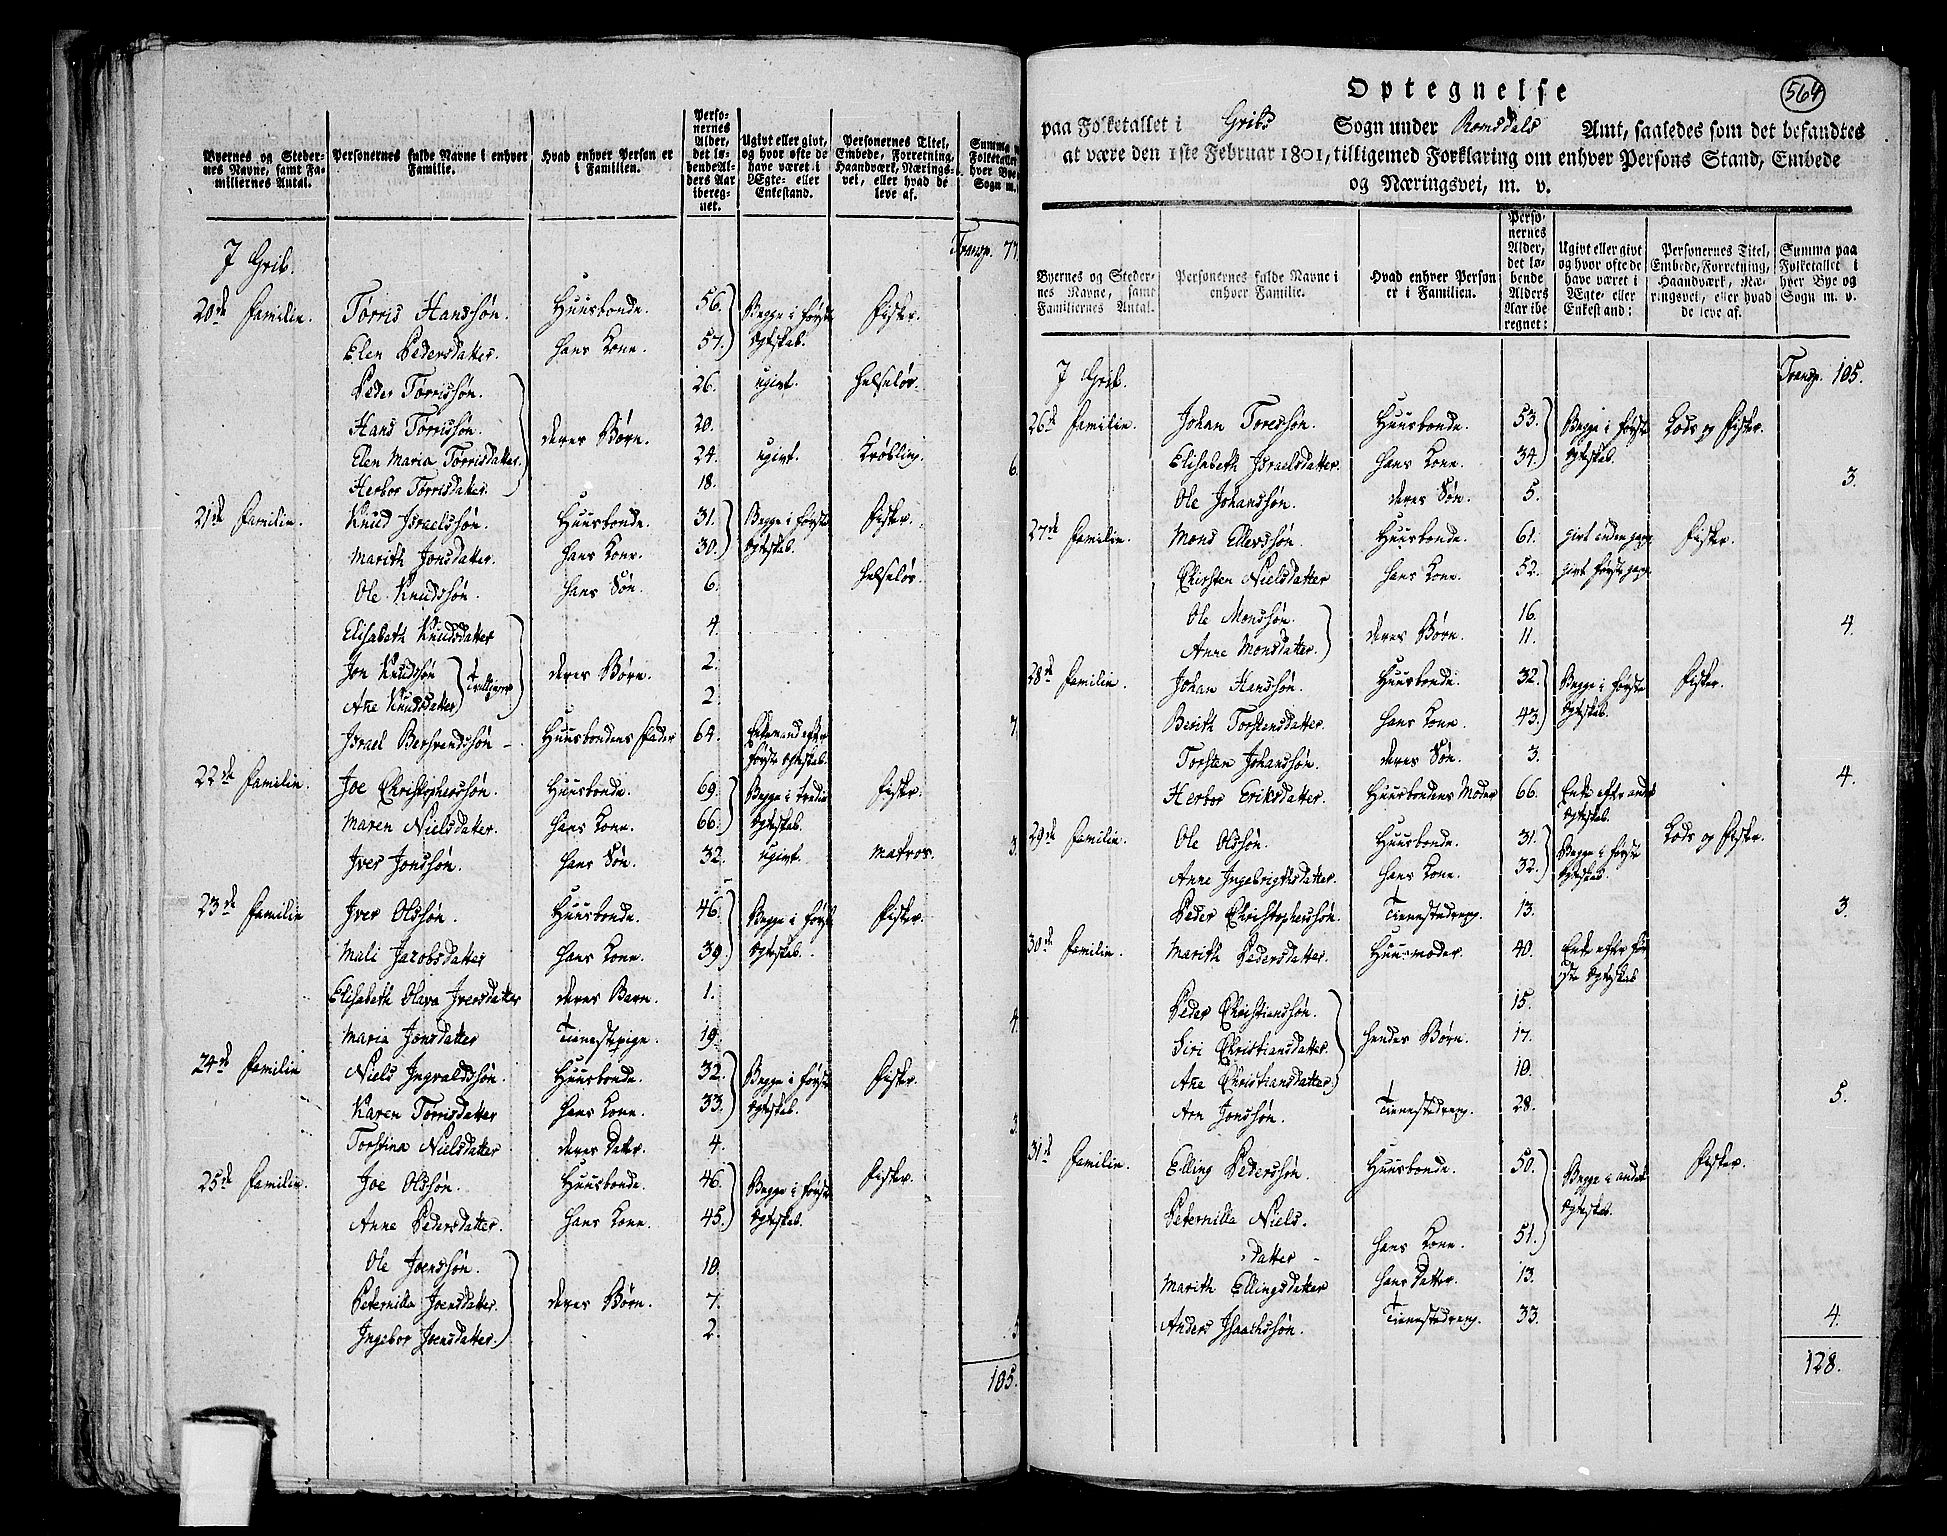 Byernes og Steder-
nes Navne, samt Fa-
miliernes Antal.
Personernes fulde Navne i enhver
Familie.
Hvad enhver Person er
i Familien.
Perso-
nernes
Alder,
det lø-
bende Al-
ders Aar
ibereg-
net.
Ugivt eller givt,
og hvor ofte de
have været i
Ægte- eller
Enkestand.
Personernes Titel,
Embede, Forretning,
Haandværk, Nærings-
vei, eller hvad de
leve af.
Summa
Folketallet
hver Bye
Sogn m.
J Grib. Transp. 77
20de Familie. Tørris Hanssøn. Huusbonde. 56. Begge i første Fisker.
Elen Pedersdatter. Hans Kone. 57. Egteskab.
Peder Tørrissøn. 26. ugivt. Helseløs.
Hans Tørrissøn. deres Børn. 20.
Elen Maria Tørrisdatter. 24. ugivt. Krøbling.
Herbor Tørrisdatter. 18. 6.
21de Familie. Knud Israelssøn. Huusbonde. 31. Begge i første Fisker.
Marith Jonsdatter. Hans Kone. 30. Egteskab.
Ole Knudssøn. Hans Søn. 6. Helseløs.
Elisabeth Knudsdatter 4.
Jon Knudssøn Tvillinger deres Børn. 2.
Ane Knudsdatter 2.
Israel Bersvendssøn Huusbondens Fader 64. Enkemand efter 7.
første Egteskab.
22de Familie. Joe Christopherssøn. Huusbonde. 69. Begge i tredie Fisker.
Maren Nielsdatter. Hans Kone. 66. Egteskab.
Iver Jonssøn. Hans Søn. 32. ugivt. Matros. 3.
23de Familie Iver Olssøn. Huusbonde. 46. Begge i første Fisker.
Mali Jacobsdatter Hans Kone. 39. Egteskab.
Elisabeth Olava Iversdatter deres Barn. 1.
Maria Jonsdatter Tienestepige. 19. 4.
24de Familie Niels Ingvaldssøn. Huusbonde. 32. Begge i første Fisker.
Karen Tørrisdatter Hans Kone. 33. Egteskab.
Torstina Nielsdatter deres Datter. 4. 3.
25de Familie. Joe Olssøn. Huusbonde. 46. Begge i første Fisker.
Anne Pedersdatter. Hans Kone. 45. Egteskab.
Ole Joenssøn. 10.
Peternilla Joensdatter. deres Børn. 7.
Ingebor Joensdatter. 2. 5
105.
564
Optegnelse
paa Folketallet i Gribs Sogn under Romsdals Amt, saaledes som det befandtes
at være den 1ste Februar 1801, tilligemed Forklaring om enhver Persons Stand, Embede
og Næringsvei, m. v.
Byernes og Steder-
nes Navne, samt
Familiernes Antal.
Personernes fulde Navne i
enhver Familie.
Hvad enhver Person
er i Familien.
Perso-
nernes
Alder,
det lø-
bende
Alders
Aar ibe
regnet:
Ugivt eller givt
og hvor ofte de
have været i
Ægte- eller
Enkestand:
Personernes Titel,
Embede, Forretning,
Haandværk, Næ-
ringsvei, eller hvad
de leve af.
Summa paa
Folketallet i
hver Bye og
Sogn m. v.
J Grib. Transp. 105.
26de Familie. Johan Toressøn. Huusbonde. 53. Begge i første Lods og Fisker.
Elisabeth Israelsdatter. Hans Kone. 34. Egteskab.
Ole Johanssøn. deres Søn. 5. 3.
27de Familie. Mons Ellerssøn. Huusbonde. 61. givt anden gang Fisker.
Chirsten Nielsdatter Hans Kone. 52. givt første gang
Ole Monssøn. 16.
Anne Monsdatter. deres Børn. 11. 4.
28de Familie. Johan Hanssøn. Huusbonde. 32. Begge i første Fisker.
Berith Torstensdatter. Hans Kone. 43. Egteskab.
Torsten Johanssøn. deres Søn. 3.
Herbor Eriksdatter. Huusbondens Moder 66. Enke efter andet 4.
Egteskab.
29de Familie. Ole Olssøn. Huusbonde. 31. Begge i første Lods og Fisker.
Anne Ingebrigthsdatter. Hans Kone. 32. Egteskab.
Peder Christopherssøn. Tienestedreng. 13. 3.
30de Familie. Marith Pedersdatter. Huusmoder. 40. Enke efter før
ste Egteskab
Peder Christianssøn. 15.
Siri Christiansdatter. Hendes Børn. 17.
Ane Christiansdatter. 10.
Arn Jonssøn. Tienestedreng. 28. 5.
31de Familie. Elling Pederssøn. Huusbonde. 50. Begge i andet Fisker.
Peternilla Niels- Egteskab.
datter Hans Kone. 51.
Marith Ellingsdatter Hans Datter. 13.
Anders Isaachssøn. Tienestedreng. 33. 4.
128.